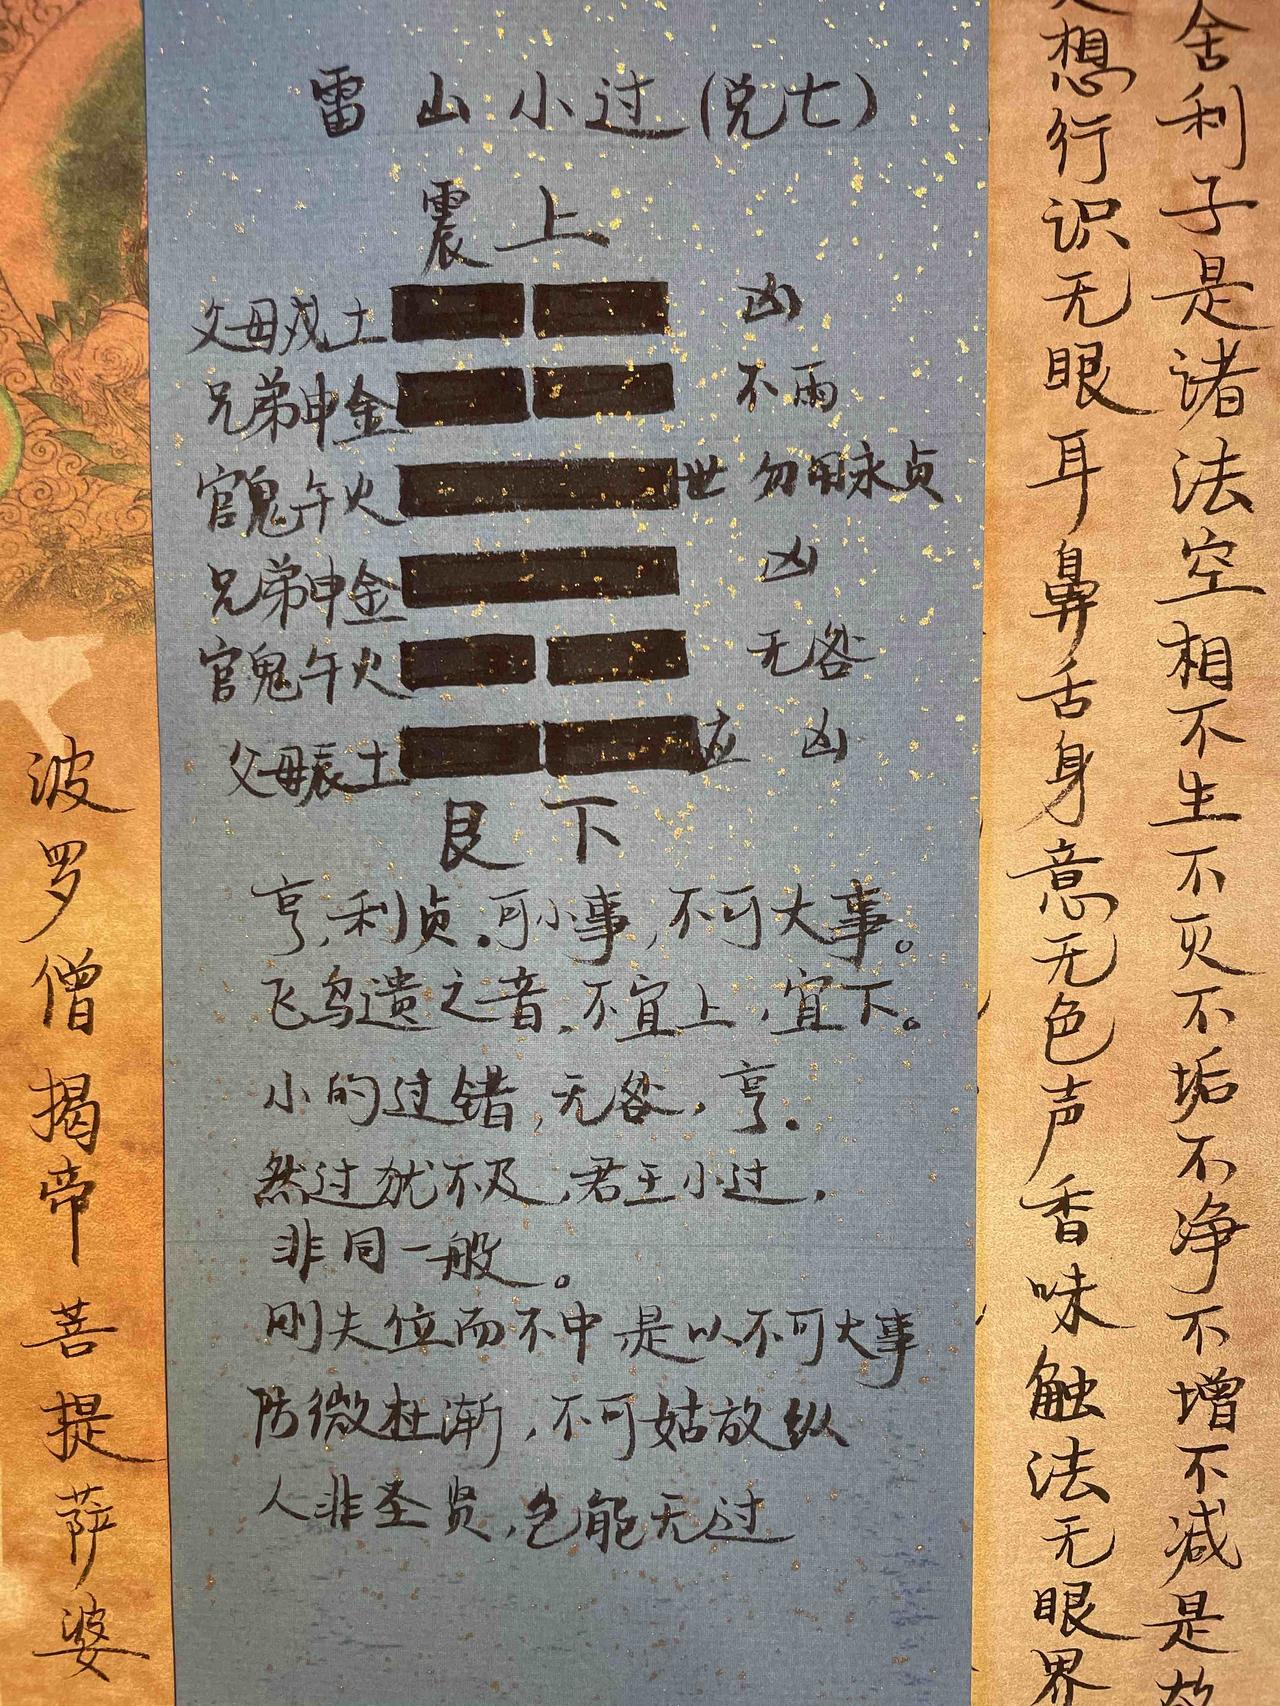 雷山小过(兑七)
震上
父母戌土 凶
兄弟申金 不雨
官鬼午火 世 勿用永贞
兄弟申金 凶
官鬼午火 无咎
父母辰土 应 凶
艮下
亨,利贞.可小事,不可大事。
飞鸟遗之音,不宜上,宜下。
小的过错,无咎,亨.
然过犹不及,君王小过,
非同一般。
刚失位而不中是以不可大事
防微杜渐,不可姑放纵
人非圣贤,能无过
舍利子是诸法空相不生不灭不垢不净不增不减是故
想行识无眼耳鼻舌身意无色声香味触法无眼界
波罗僧揭帝菩提萨婆